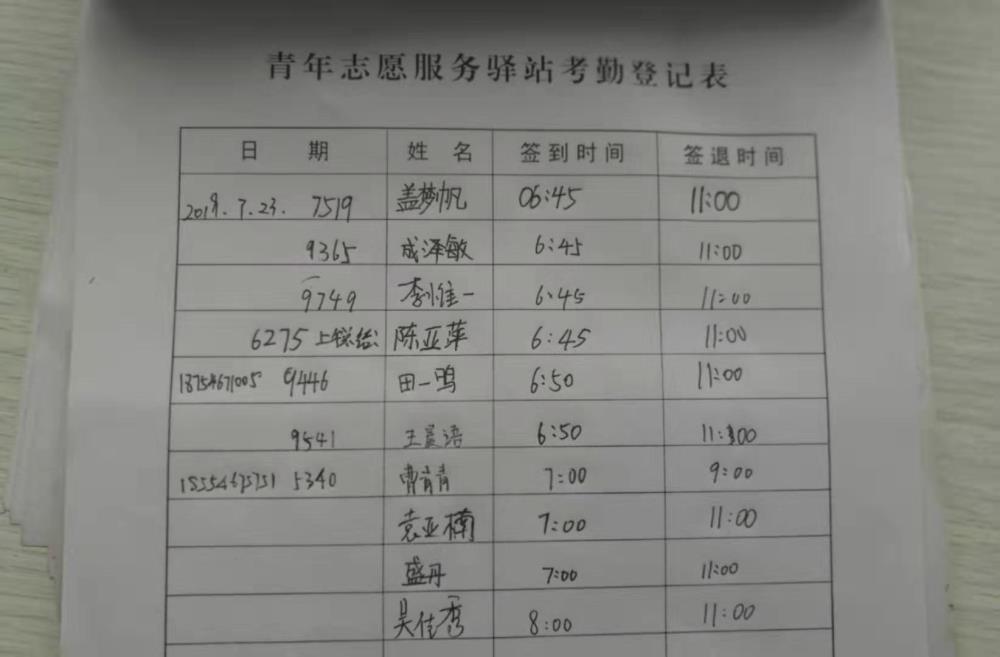 青年志愿服务驿站考勤登记表
日 期 姓 名 签到时间 签退时间
2019.7.23. 7519 盖梦帆 06:45 11:00
9365 成泽敏 6:45 11:00
9749 李惟一 6:45 11:00
6275 陈亚萍 6:45 11:00
18754671005 9446 田一鸣 6:50 11:00
9541 6:50 11:00
15554675751 5340 曹肯青 7:00 9:00
袁亚楠 7:00 11:00
盛丹 7:00 11:00
吴佳秀 8:00 11:00